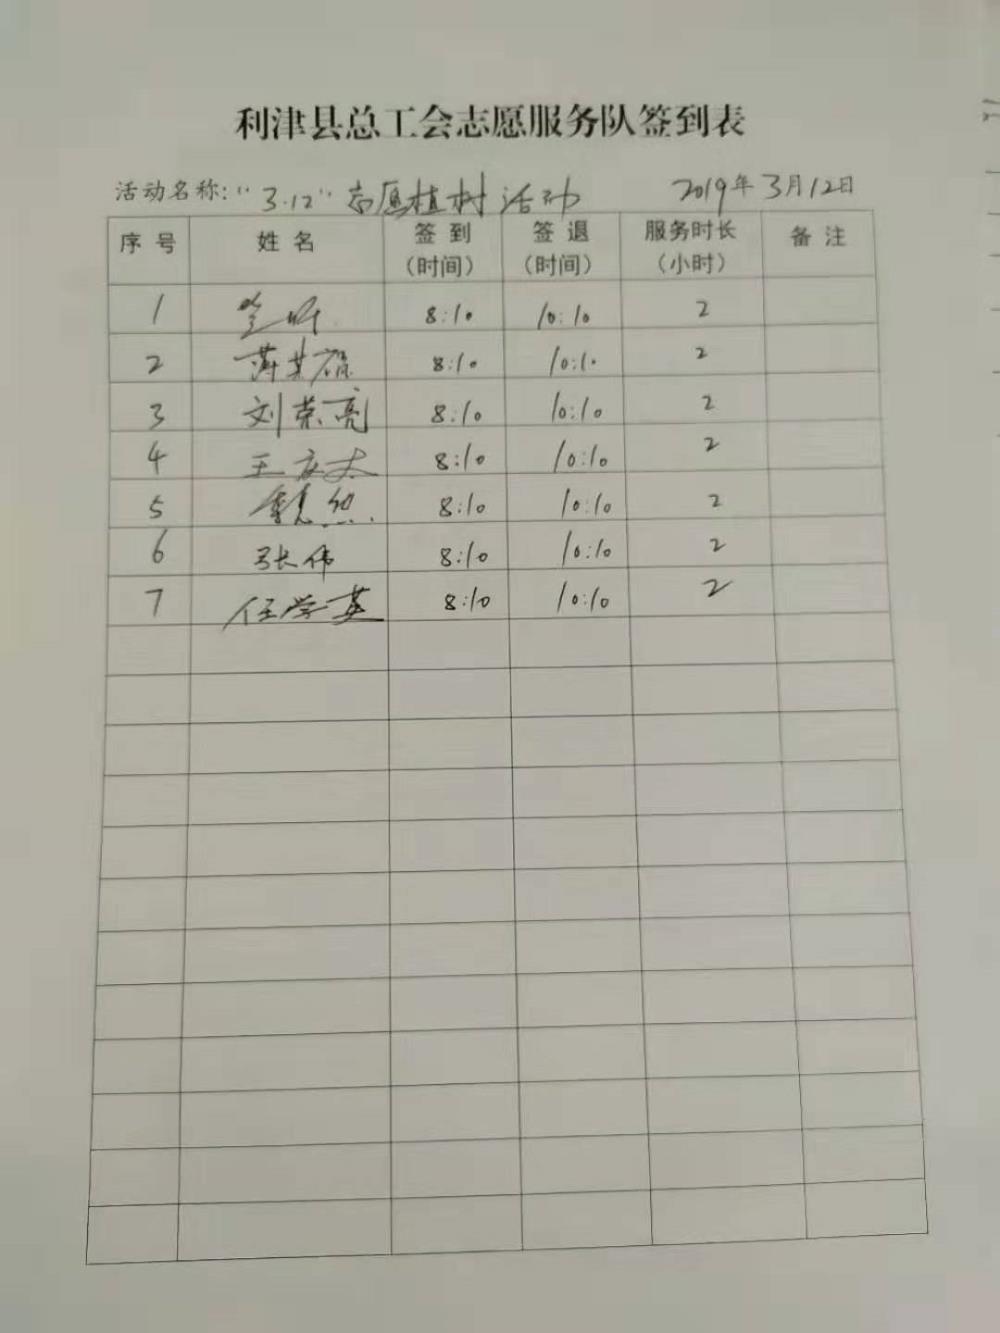 利津县总工会志愿服务队签到表
活动名称："3.12"志愿植树活动 2019年3月12日
序号 姓名 签到（时间） 签退（时间） 服务时长（小时） 备注
1 8:10 10:10 2
2 8:10 10:10 2
3 刘荣亮 8:10 10:10 2
4 8:10 10:10 2
5 8:10 10:10 2
6 张伟 8:10 10:10 2
7 任学英 8:10 10:10 2